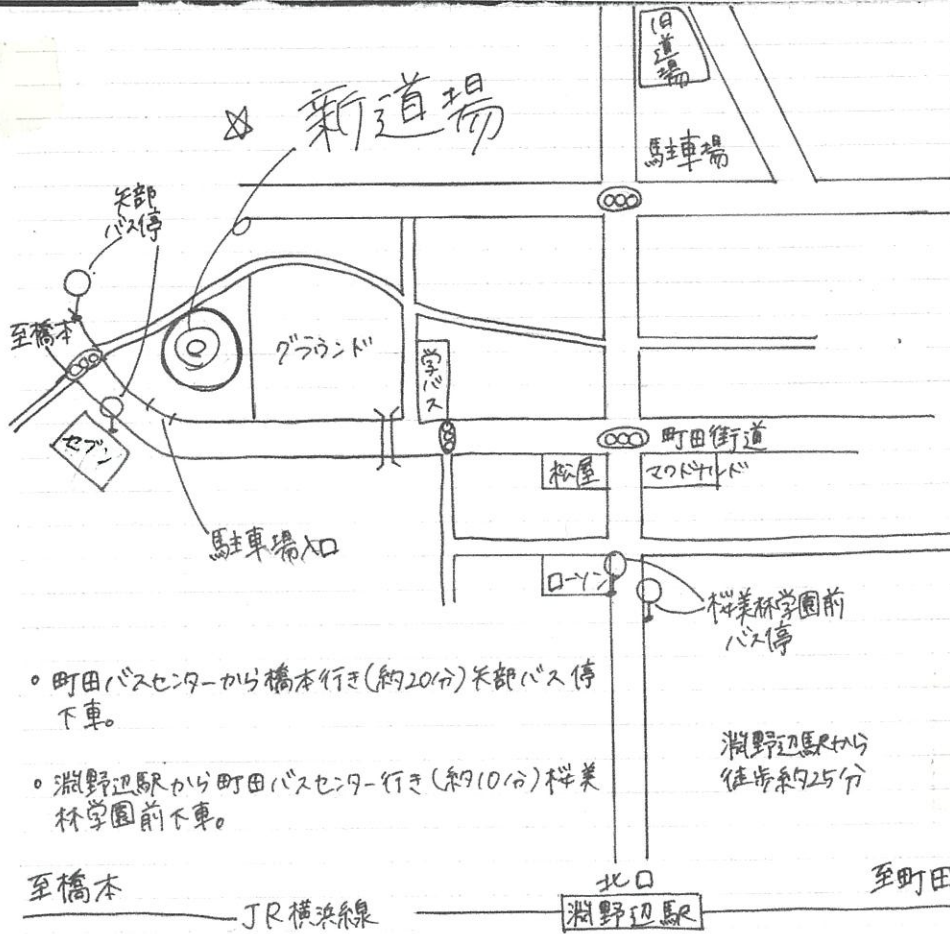 旧道場
☆ 新道場
駐車場
矢部
バス停
至橋本
グラウンド
学バス
セブン
町田街道
松屋
マクドナルド
駐車場入口
ローソン
桜美林学園前
バス停
。町田バスセンターから橋本行き(約20分)矢部バス停
下車。
。淵野辺駅から町田バスセンター行き(約10分)桜美
林学園前下車。
淵野辺駅から
徒歩約25分
至橋本
北口
至町田
JR横浜線
淵野辺駅